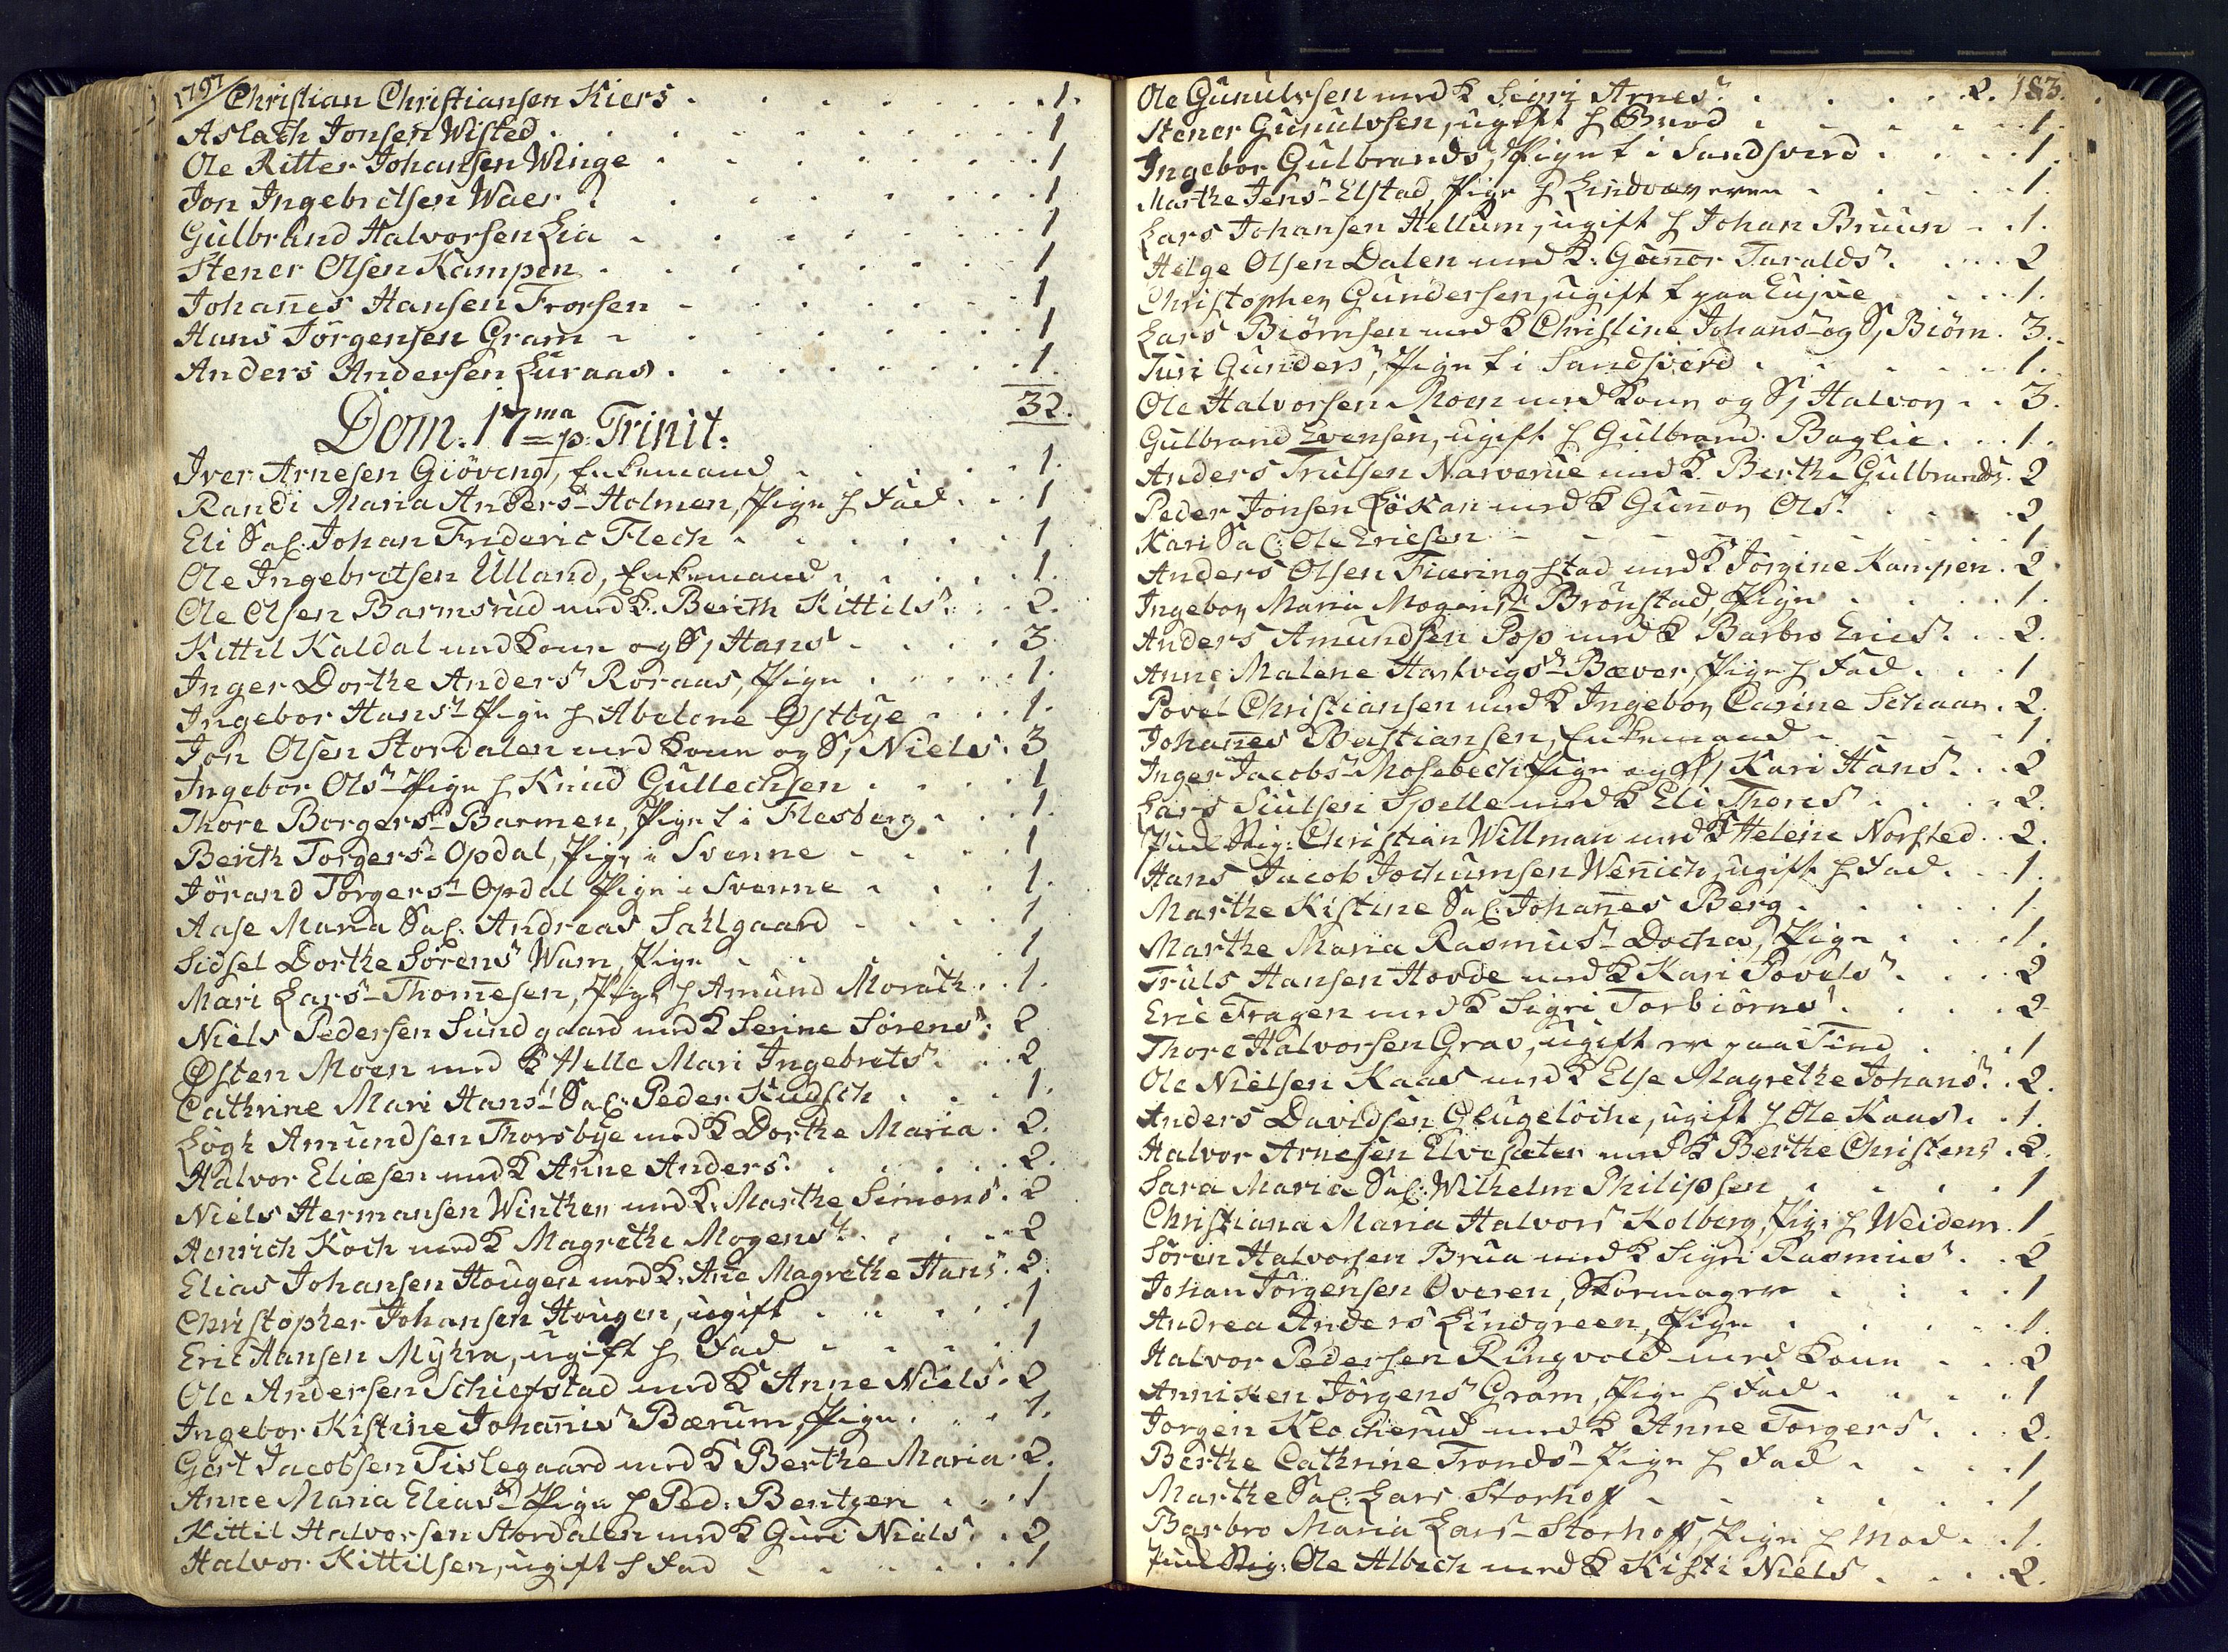 1797
Christian Christiansen Kiers . . . . . . . . 1.
Aslach Jonsen Wisted . . . . . . . . 1
Ole Ritter Johansen Winge . . . . . . . 1
Jon Ingebretsen Waer . . . . . . . 1
Gulbrand Halvorsen Lia . . . . . . . 1
Stener Olsen Kampen . . . . . . . 1
Johan̅es Hansen Frorsen . . . . . . 1
Hans Jörgensen Gram . . . . . . . 1
Anders Andersen Luraas . . . . . . . 1.
32.
Dom. 17ma p. Trinit:
Iver Arnesen Giöveng, Enkemand . . . . 1.
Randi Maria Anders Holmen, Pige h Fad . . 1
Eli Sal. Johan Frideric Flech . . . . . 1
Ole Ingebretsen Ulland, Enkemand . . . . 1.
Ole Olsen Barmsrud med K. Berith Kittils . . 2.
Kittil Kaldal med Kone og S, Hans . . . . 3
Inger Dorthe Anders Röraas, Pige . . . . 1.
Ingebor Hans Pige h Abelone Østbye . . . 1.
Jon Olsen Stordalen med Kone og S, Niels . 3
Ingebor Ols Pige h Knud Gullechsen . . . 1
Thore Borgers Barmen, Pige t i Flesberg . . . 1.
Berith Torgers Opdal, Pige i Svenne . . . . 1
Jörand Torgers Opdal Pige i Svenne . . . 1.
Aase Maria Sal. Andreas Sahlgaard . . . . 1
Sidsel Dorthe Sörens Wam, Pige . . . . . 1
Mari Lars Thom̅esen, Pige h Amund Morath . . 1.
Niels Pedersen Sundgaard med K Serine Sörens . 2
Østen Moen med K Helle Mari Ingebrets . . 2
Cathrine Mari Hans Sal. Peder Kudsch . . . 1.
Lögh Amundsen Thorsbye med K Dorthe Maria . 2.
Halvor Eliæsen med K Anne Anders . . . . . 2.
Niels Hermansen Winther med K. Marthe Simons . 2
Henrich Koch med K Magrethe Mogens . . . . 2
Elias Johansen Hougen med K. An̅e Magrethe Hans . 2.
Christopher Johansen Hougen, ugift . . . . . 1
Eric Hansen Myhra, ugift h Fad . . . . . 1
Ole Andersen Schiefstad med K Anne Niels . 2
Ingebor Kistine Johan̅is Bærum, Pige . . . 1.
Gert Jacobsen Tislegaard med K Berthe Maria . 2.
Anne Maria Elias Pige h Ped. Bentzen . . . 1
Kittil Halvorsen Stordalen med K Guri Niels . . 2
Halvor Kittilsen, ugift h Fad . . . . . . 1
183.
Ole Gunulvsen med K Sigri Arnes . . . . . 2.
Stener Gunulvsen, ugift h . . . . . 1.
Ingebor Gulbrands, Pige t i Sandsverd . . . 1.
Marthe Jens Elstad, Pige h Lindvæveren . . . . 1.
Lars Johansen Hellum, ugift h Johan Bruun . . 1.
Helge Olsen Dalen med K. Gun̅or Taralds . . . 2
Christopher Gundersen, ugift t paa . . . 1.
Lars Biörnsen med K Christine Johans og S, Biörn . 3.
Turi Gunders, Pige t i Sandsverd . . . . . 1.
Ole Halvorsen Moen med Kone og S, Halvor . . 3.
Gulbrand Evensen, ugift h Gulbrand Baglie . . . 1.
Anders Trulsen Narverue med K. Berthe Gulbrands . 2
Peder Jonsen Lökan med K Gun̅or Ols . . . . 2
Kari Sal. Ole Ericsen . . . . . . . 1
Anders Olsen Fiæringstad med K Jörgine Kampen . 2
Ingebor Maria Mogens Brönstad, Pige . . . . 1.
Anders Amundsen Pop med K Barbro Erics . . 2.
Anne Malene Hartvigs Bæver, Pige h Fad . . . 1
Povel Christiansen med K Ingebor Carine Schaan . 2.
Johan̅es Bastiansen, Enkemand . . . . . 1.
Inger Jacobs Mosebech Pige og S, Kari Hans . . 2
Lars Siulsen Spelle med K Eli Thores . . . . 2.
Christian Willman med K Helene Norsted . . 2.
Hans Jacob Jochumsen Wen̅ich, ugift h Fad . . 1.
Marthe Kistine Sal. Johan̅es Berg . . . . . 1.
Marthe Maria Rasmus Docha, Pige . . . . 1.
Truls Hansen Hovde med K Kari Povels . . . 2
Eric Fragen med K Sigri Torbiörns . . . . 2
Thore Halvorsen Grav, ugift er paa Tind . . . 1
Ole Nielsen Kaas med K Else Magrethe Johans . . 2.
Anders Davidsen Glugelöche, ugift h Ole Kaas . . 1.
Halvor Arnesen Elvesæter med K Berthe Christens . 2.
Sara Maria Sal. Wilhelm Philipsen . . . . . 1
Christiana Maria Halvors Kolberg, Pige h Weidem . 1
Sören Halvorsen Brua med K Sigri Rasmus . . 2
Johan Jörgensen Overen, Skomager . . . . 1
Andrea Anders Lindgreen, Pige . . . . . 1.
Halvor Pedersen Ringvold med Kone . . . 2
Anniken Jörgens Gram, Pige h Fad . . . . 1
Jörgen Klocherud med K Anne Torgers . . . 2.
Berthe Cathrine Tronds Pige h Fad . . . . 1
Marthe Sal. Lars Storhoff . . . . . . 1
Barbro Maria Lars Storhoff, Pige h Mod . . 1.
Ole Albech med K Kisti Niels . . . . 2.